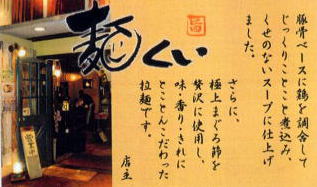 麺くい
豚骨ベースに鶏を調合して
じっくりことこと煮込み、
くせのないスープに仕上げ
ました。
さらに、
極上まぐろ節を
贅沢に使用し、
味・香り・きれに
とことんこだわった
拉麺です。
店主